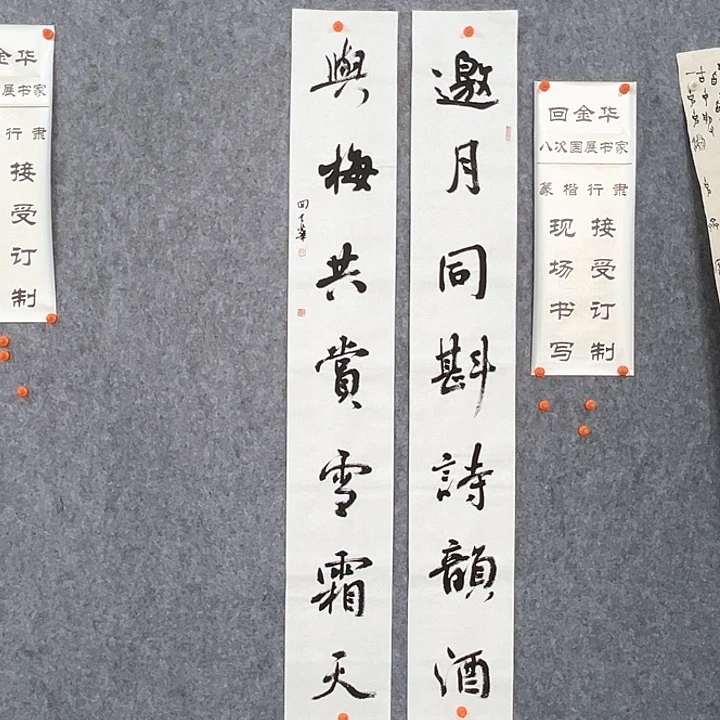 邀月同斟詩韻酒
與梅共賞雪霜天
回金華
回金华
八次国展书家
篆楷行隶
接受订制
现场书写
金华
展书家
行隶
接受订制